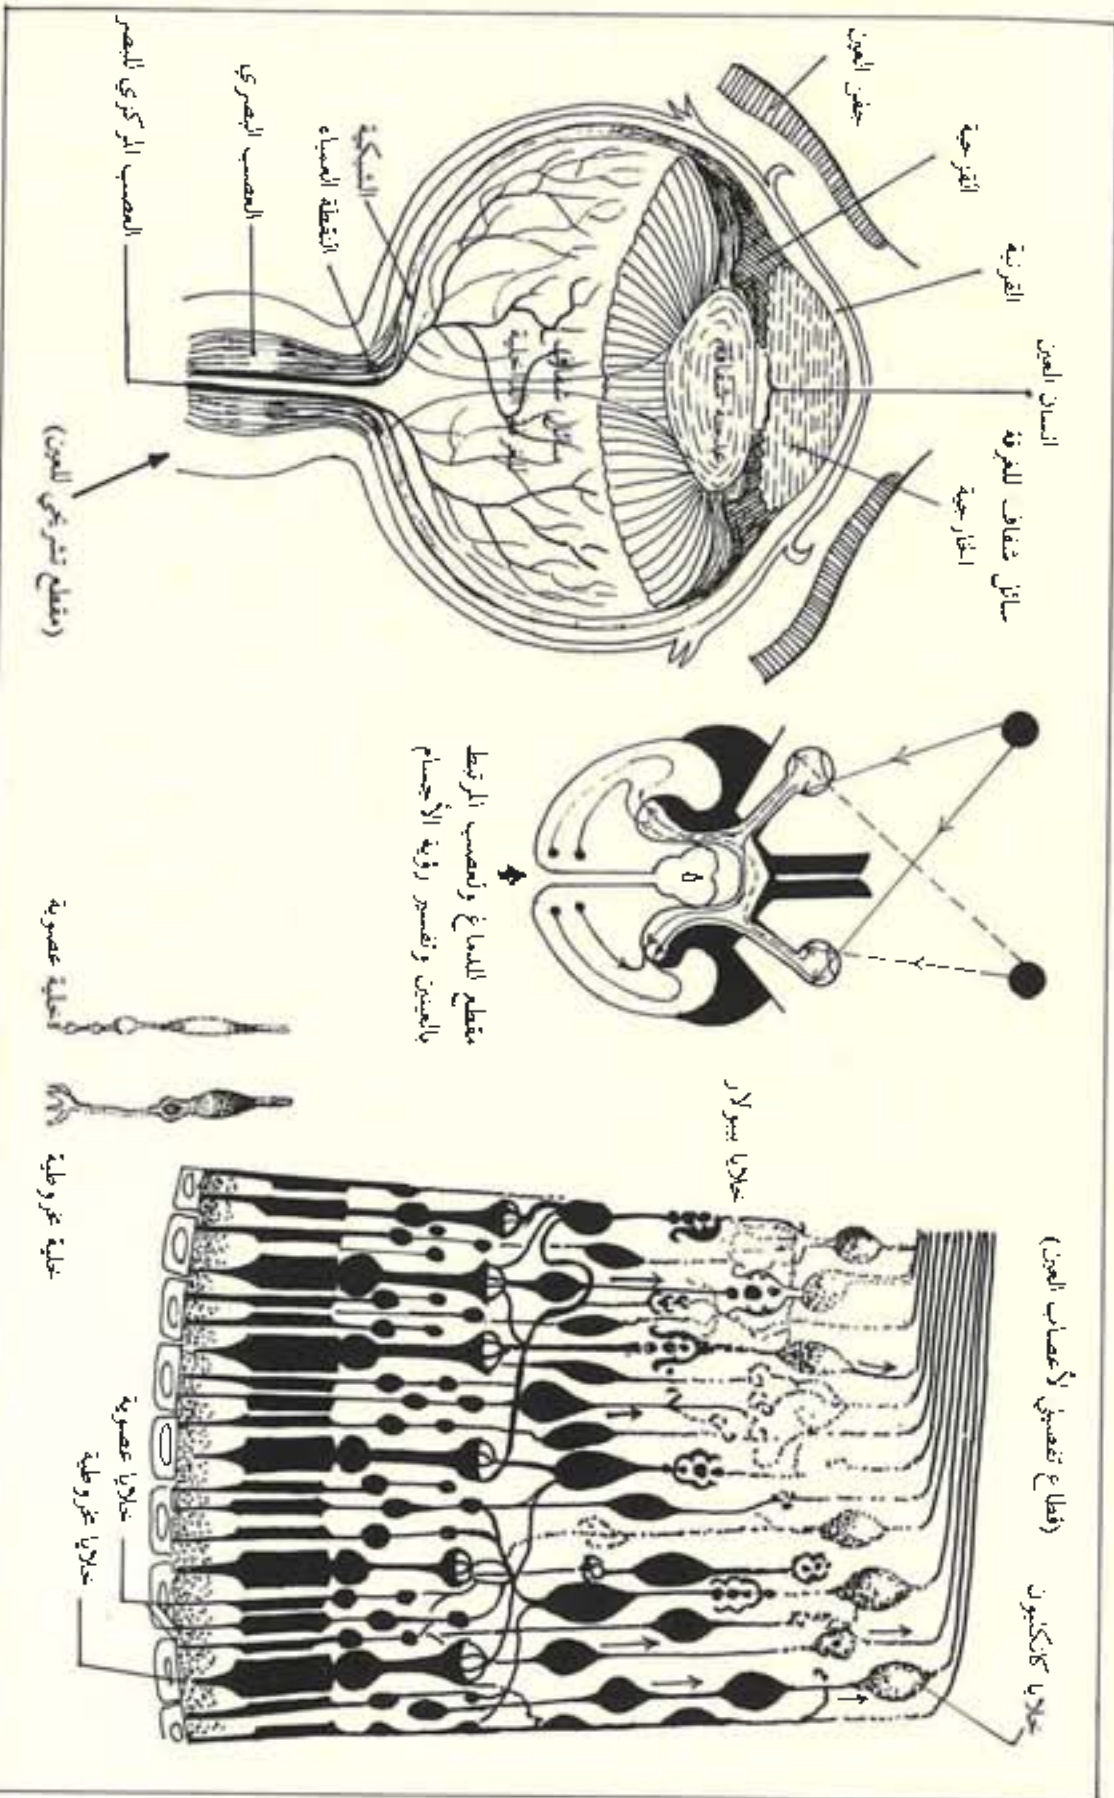 جفن العين
القزحية
القرنية
انسان العين
سائل شفاف للغرفة
الخارجية
عدسة شفافة
سائل
الداخلية
الشبكية
النقطة العمياء
العصب البصري
العصب المركزي للبصر
(مقطع تشريحي للعين)
مقطع للدماغ والعصب المرتبط
بالعينين وتفسير رؤية الأجسام
خلية عصوية
خلية مخروطية
(قطاع تفصيلي لأعصاب العين)
خلايا كانكليون
خلايا بيبولار
خلايا عصوية
خلايا مخروطية